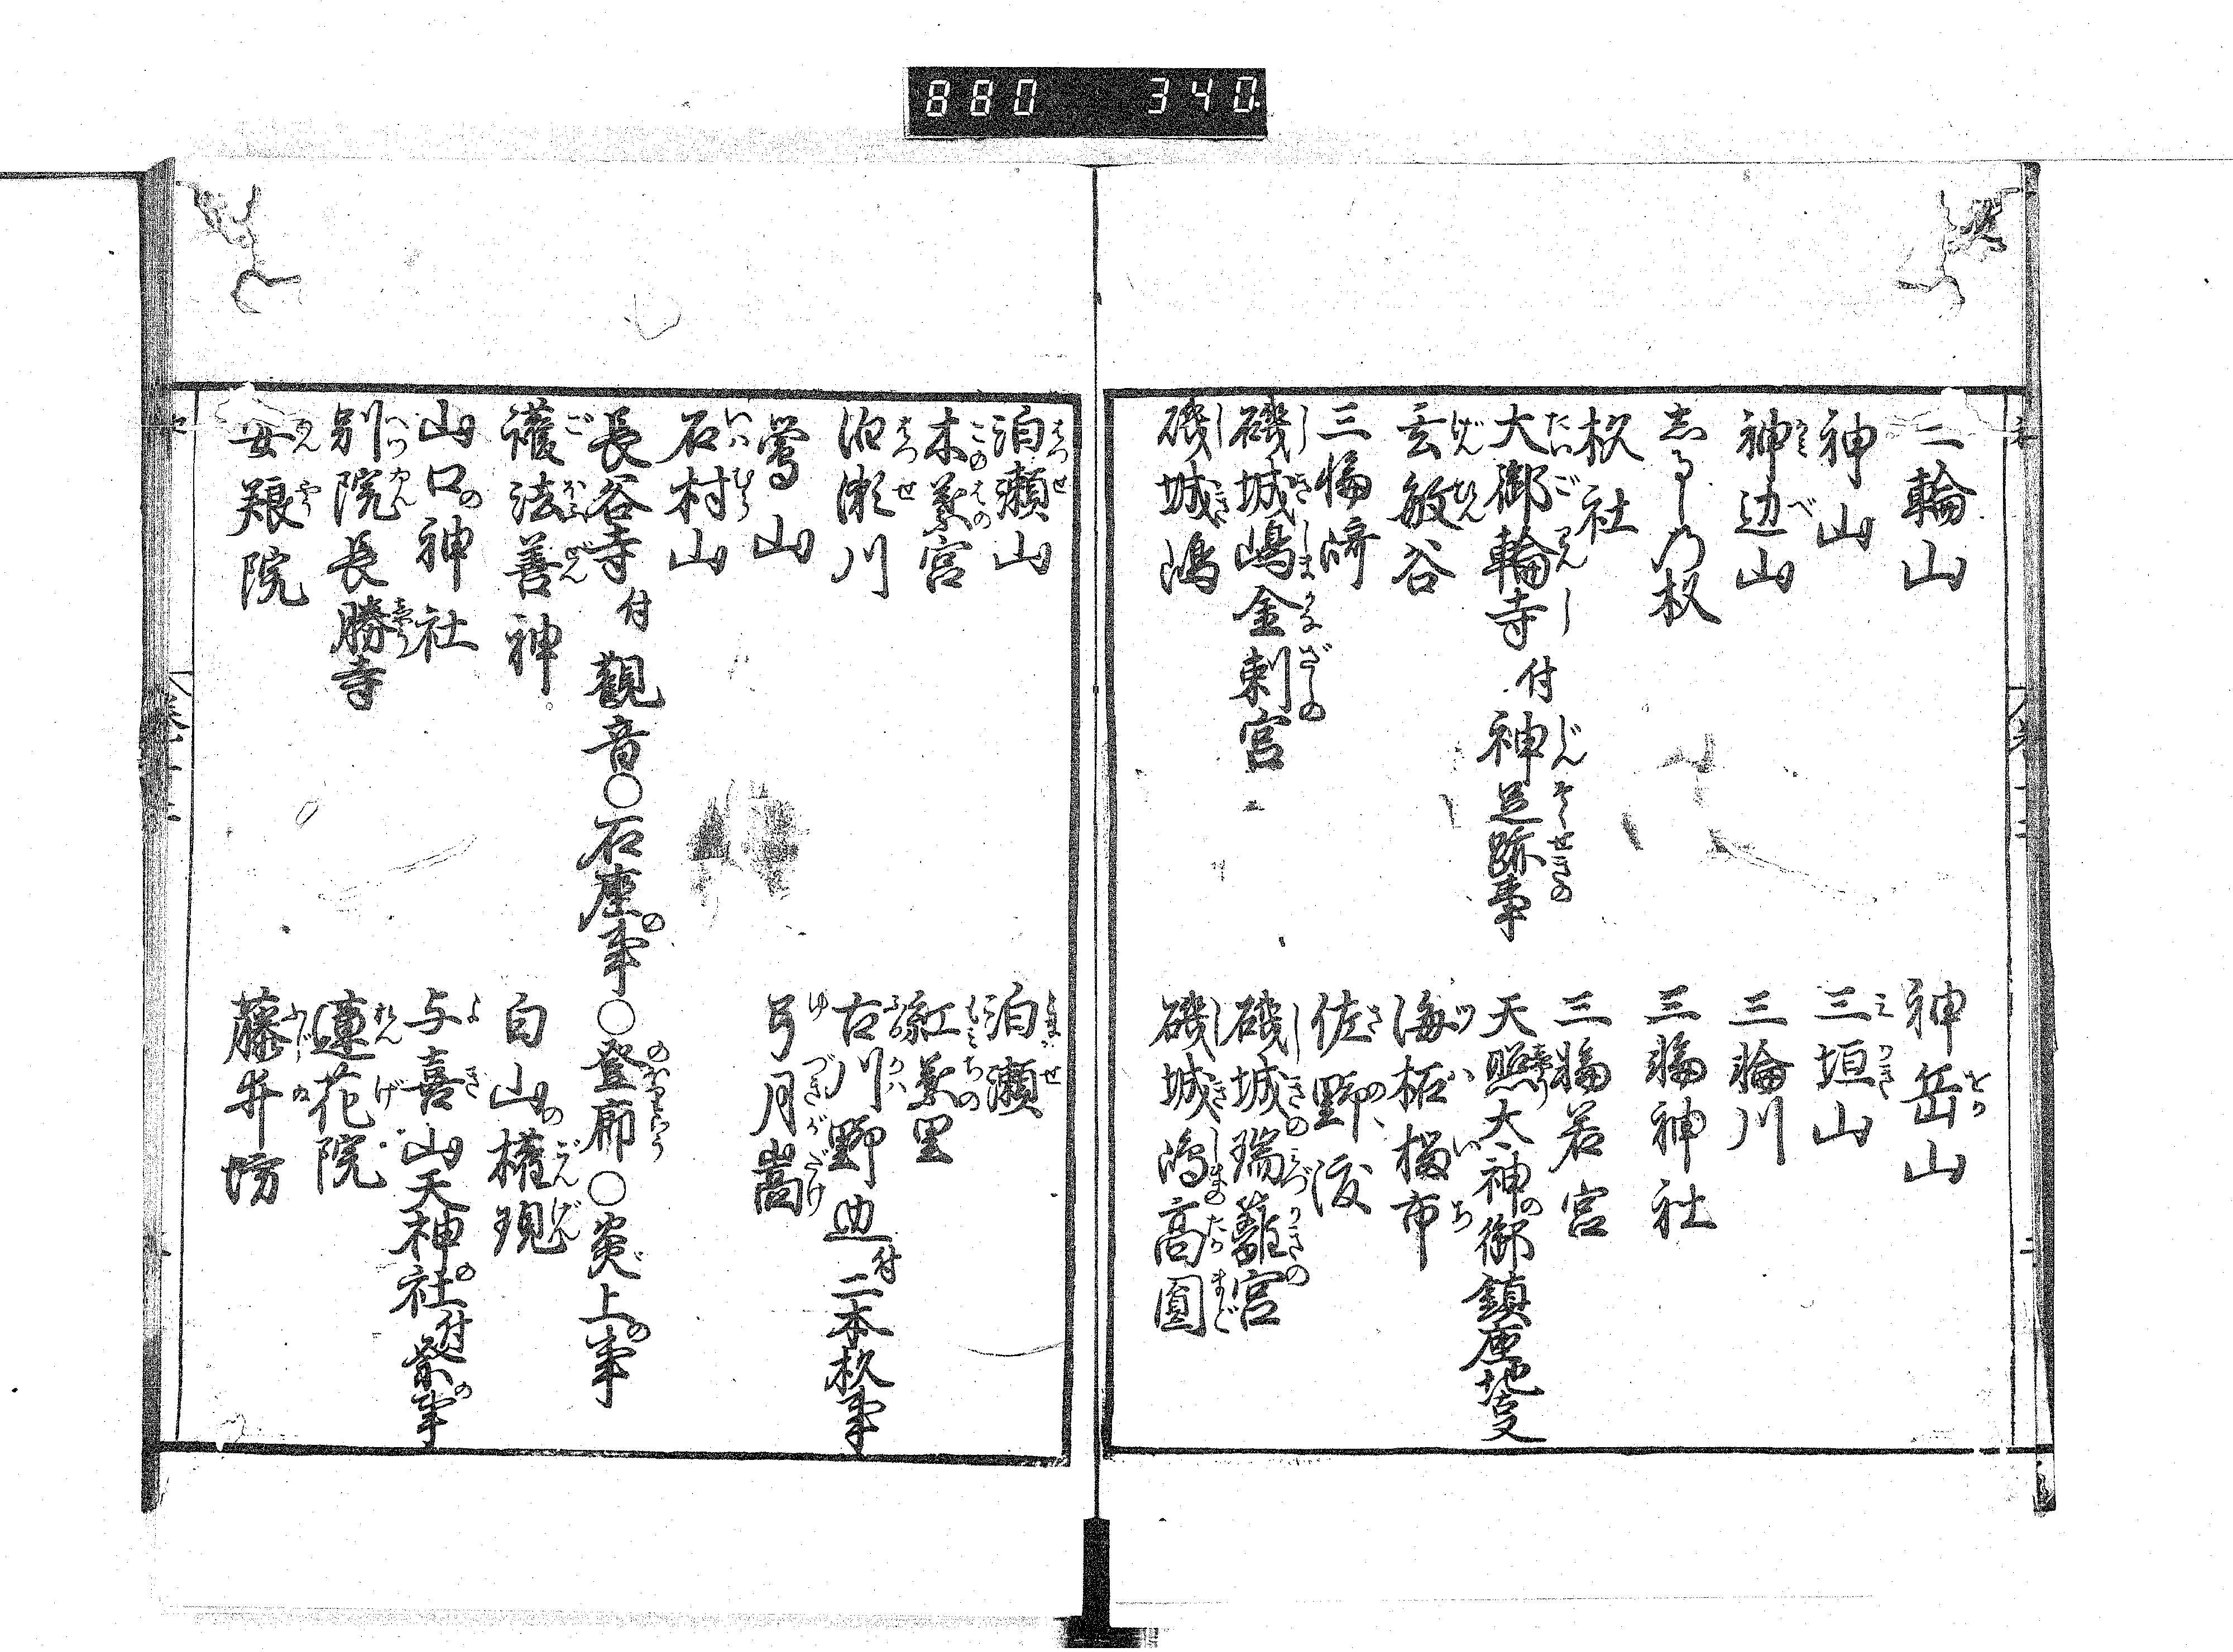 880 340
三輪山 神岳山
神山 三垣山
神辺山 三輪川
志るしの杉 三輪神社
杉社 三輪若宮
大御輪寺 付 神足跡事 天照太神御鎮座地事
玄敏谷 海柘榴市
三輪崎 佐野渡
磯城嶋金刺宮 磯城瑞籬宮
磯城嶋 磯城嶋高圓
泊瀬山 泊瀬
木葉宮 紅葉里
泊瀬川 古川野辺 付 二本杉事
鶯山 弓月嵩
石村山
長谷寺 付 觀音○石座事○登廊○炎上事
護法善神 白山権現
山口神社 与喜山天神社 付 祭事
別院長勝寺 蓮花院
安養院 藤井坊